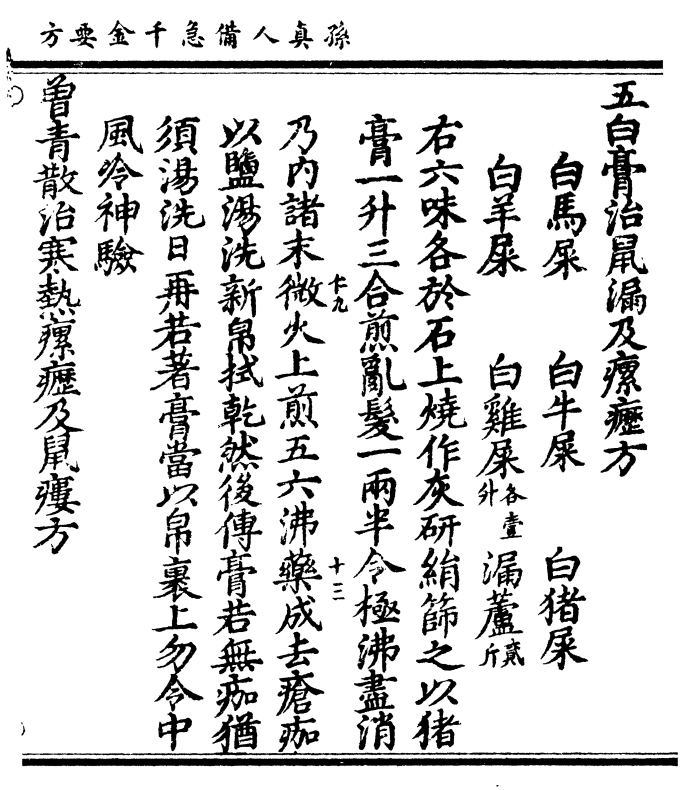 孫真人備急千金要方
五白膏治鼠漏及瘰癧方
白馬屎 白牛屎 白猪屎
白羊屎 白雞屎各壹升 漏蘆貳斤
右六味各於石上燒作灰研絹篩之以猪
膏一升三合煎亂髮一兩半令極沸盡消
乃內諸末微火上煎五六沸藥成去瘡痂
以鹽湯洗新帛拭乾然後傅膏若無痂猶
須湯洗日再若著膏當以帛裹上勿令中
風冷神驗
曾青散治寒熱瘰癧及鼠瘻方
卞九
十三